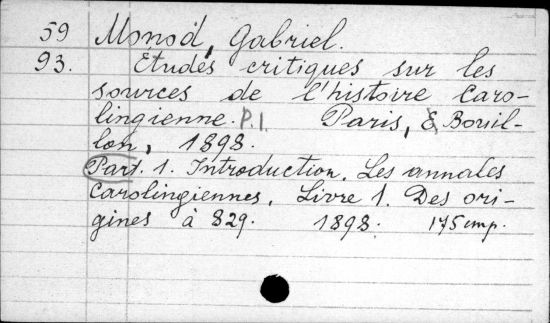 59 Monod, Gabriel.
93. Études critiques sur les
sources de l'histoire caro-
lingienne. P.1. Paris, É. Bouil-
lon, 1898.
Part. 1. Introduction. Les annales
carolingiennes. Livre 1. Des ori-
gines à 829. 1898. 175 стр.